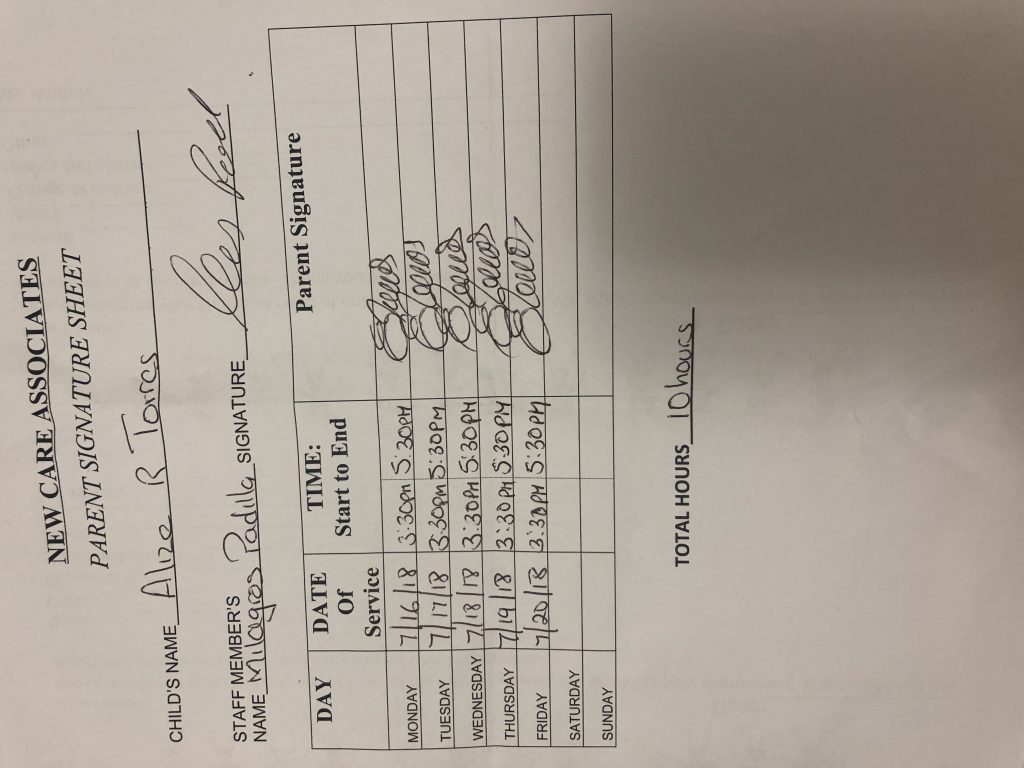 NEW CARE ASSOCIATES
PARENT SIGNATURE SHEET
CHILD'S NAME Alize R Torres
STAFF MEMBER'S
NAME Milagros Padilla SIGNATURE
DAY DATE Of Service TIME: Start to End Parent Signature
MONDAY 7/16/18 3:30pm 5:30PM
TUESDAY 7/17/18 3:30pm 5:30PM
WEDNESDAY 7/18/18 3:30PM 5:30PM
THURSDAY 7/19/18 3:30PM 5:30PM
FRIDAY 7/20/18 3:30PM 5:30PM
SATURDAY
SUNDAY
TOTAL HOURS 10 hours